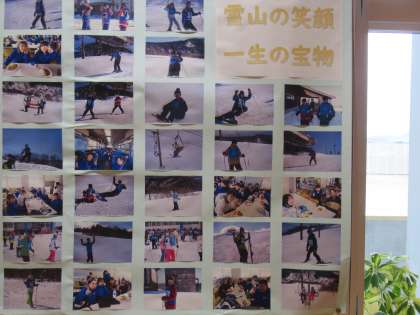 雪山の笑顔
一生の宝物